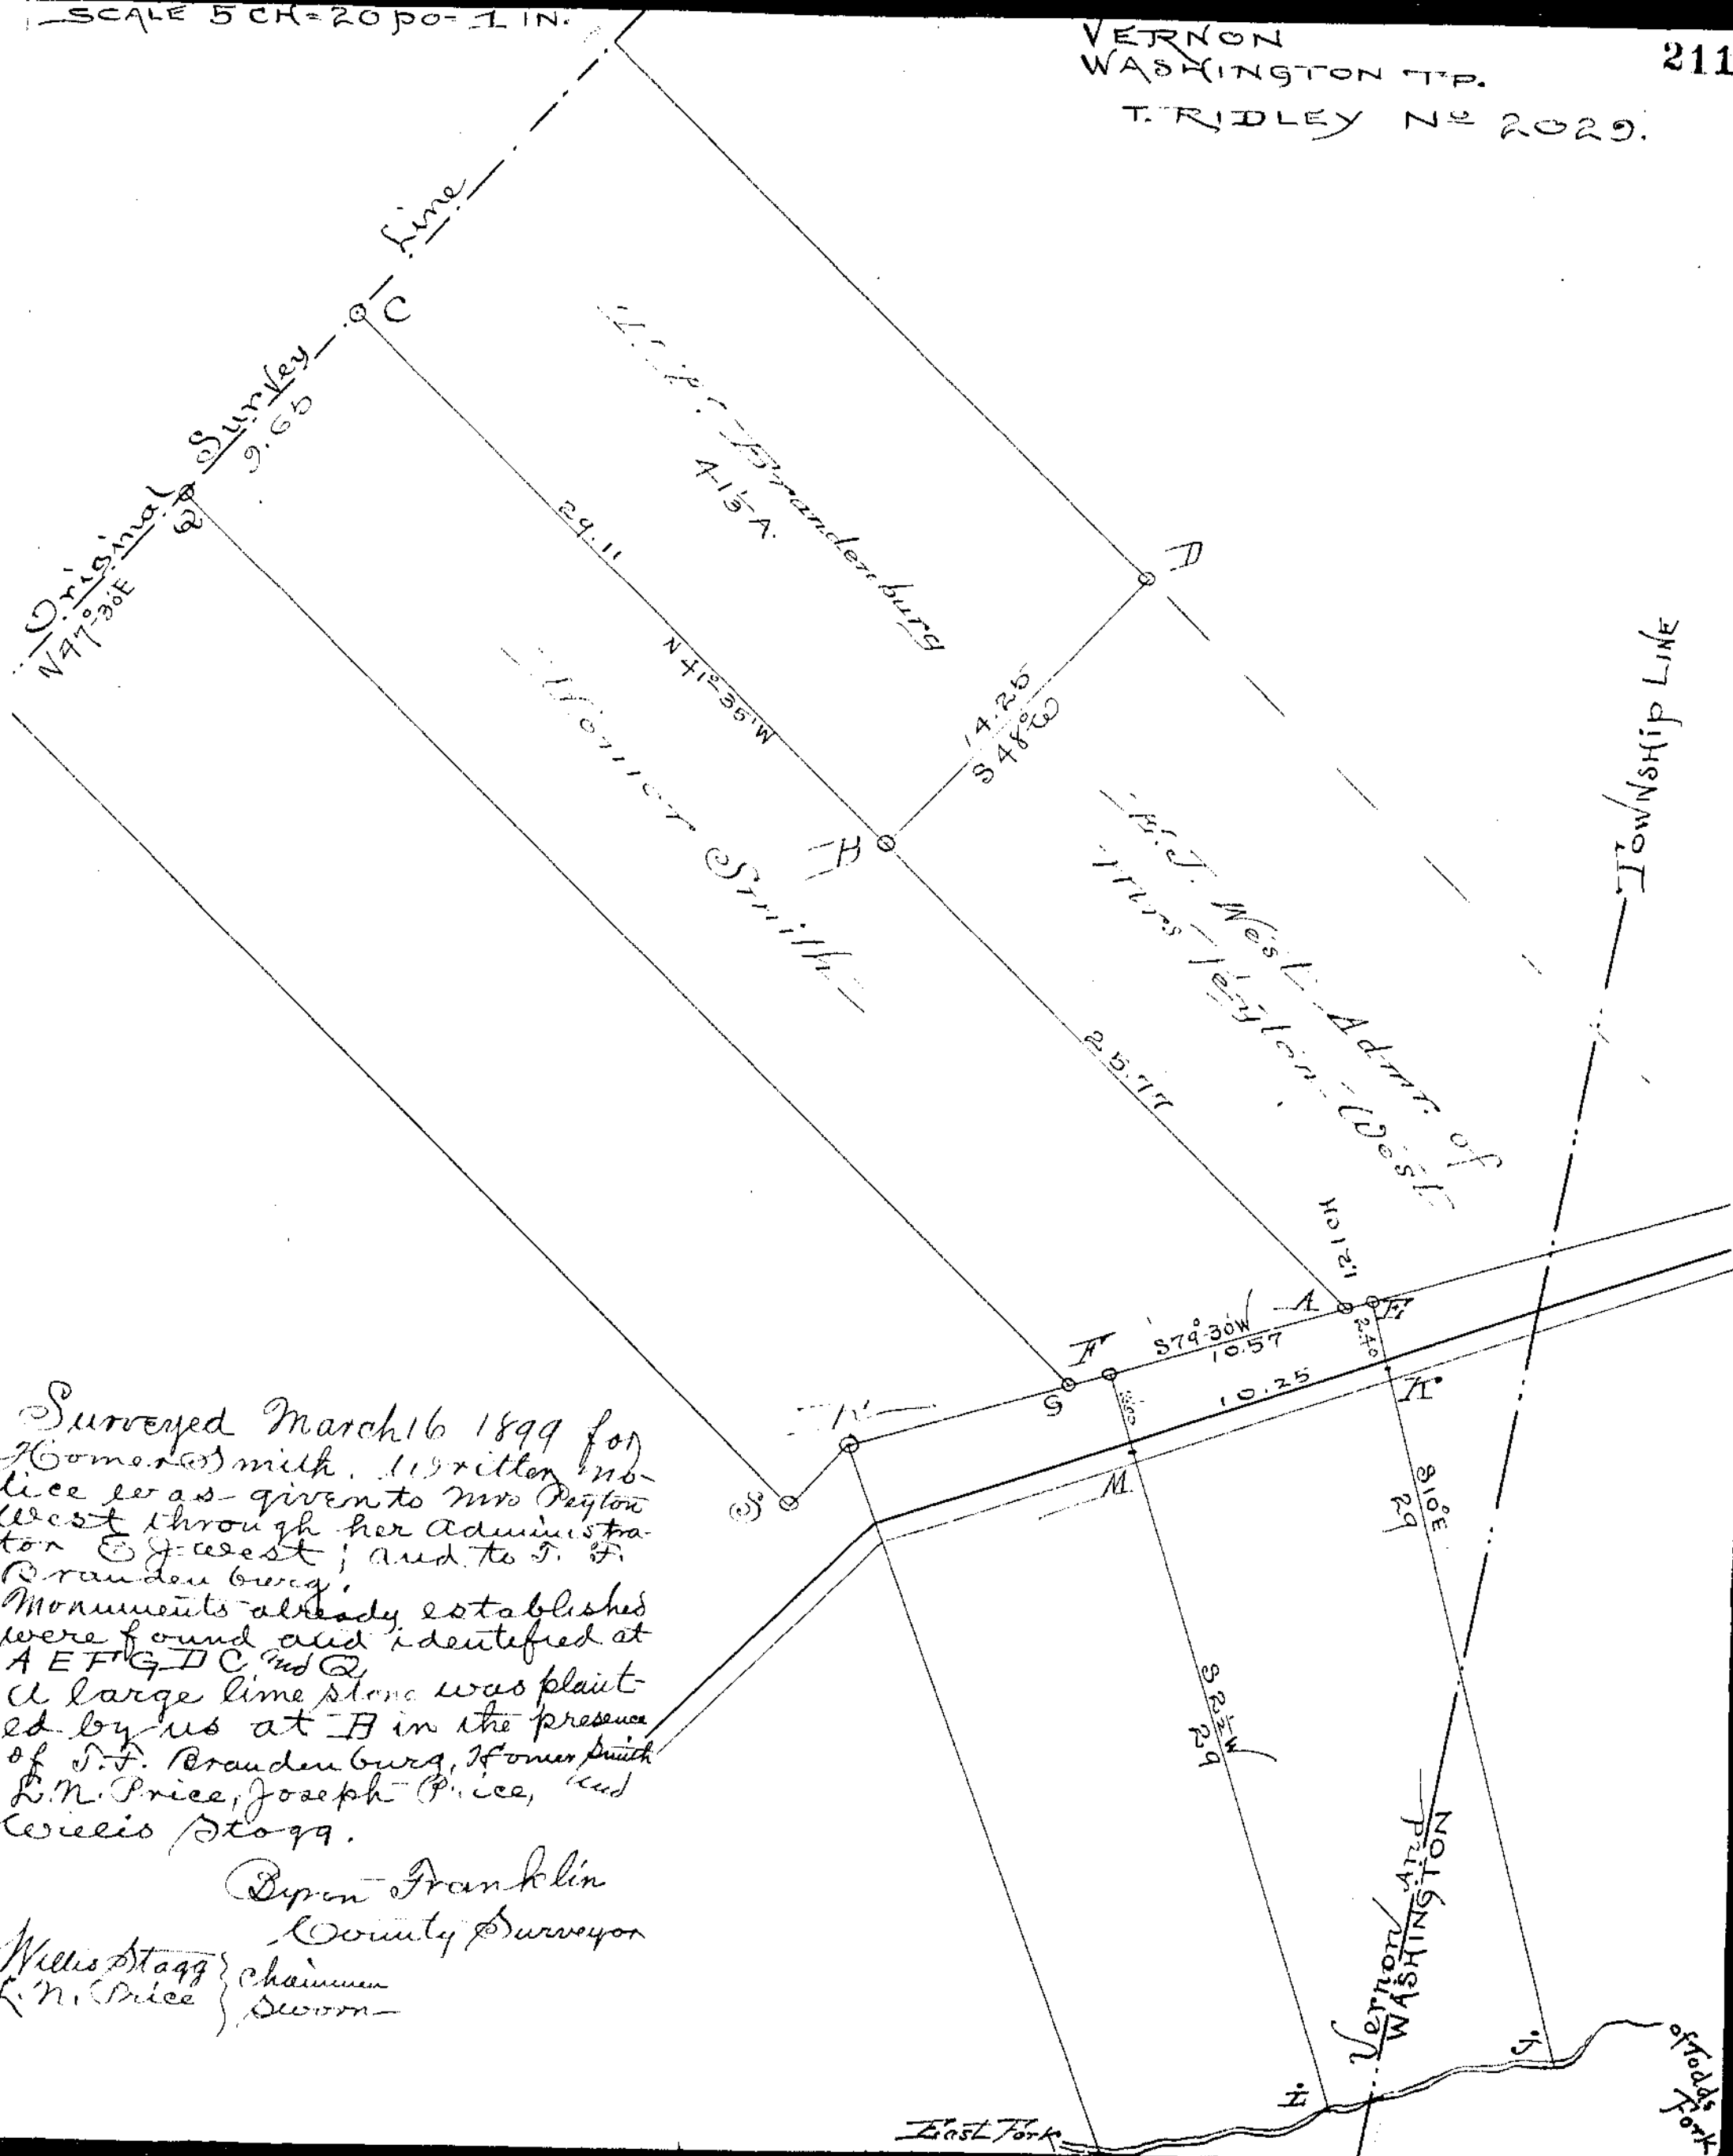 SCALE 5 CH = 20 po = 1 IN.
VERNON
WASHINGTON TP.
T. RIDLEY No 2029.
211
Original Survey Line
N47°30'E
9.65
C
Q
Brandenburg
41½ A.
29.11
N 41°35'W
Homer Smith
D
14.25
S48°W
B
E.J. West Admr. of
Mrs Peyton West
25.77
TOWNSHIP LINE
1.21 CH
A
E
2.40
S79°30'W
10.57
F
G
10.25
K
M
R
S
S10°E
29
29
Vernon And
WASHINGTON
L
East Fork
of Todds
Fork
Surveyed March 16 1899 for
Homer Smith. Written no-
tice was given to Mrs Peyton
West through her Administra-
tor E J West; and to T. F.
Brandenburg.
Monuments already established
were found and identefied at
A E F G D C and Q
A large lime stone was plant-
ed by us at B in the presence
of T.F. Brandenburg, Homer Smith
L.N. Price, Joseph Price, and
Willis Stagg.
Byron Franklin
County Surveyor
Willis Stagg } Chainmen
L.N. Price } Sworn